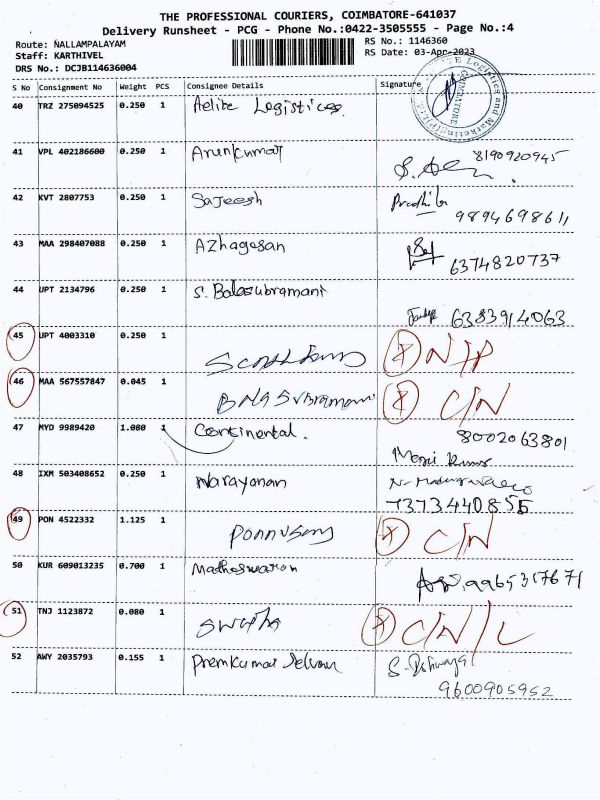 THE PROFESSIONAL COURIERS, COIMBATORE-641037
Delivery Runsheet - PCG - Phone No.:0422-3505555 - Page No.:4
Route: NALLAMPALAYAM
RS No.: 1146360
Staff: KARTHIVEL
RS Date: 03-Apr-2023
DRS No.: DCJB114636004
S No Consignment No Weight PCS Consignee Details Signature
COIMBATORE
40 TRZ 275094525 0.250 1 Aelite Logistices
41 VPL 402186600 0.250 1 Arunkumar 8190920945
42 KVT 2807753 0.250 1 Sajeesh
9894698611
43 MAA 298407088 0.250 1 Azhagesan
6374820737
44 UPT 2134796 0.250 1 S. Balasubramani
6383914063
45 UPT 4003310 0.250 1
46 MAA 567557847 0.045 1 C/N
47 MYD 9989420 1.080 1 Continental. 8002063801
48 IXM 503408652 0.250 1 Narayanan
7373440855
49 PON 4522332 1.125 1 Ponnusamy C/N
50 KUR 609013235 0.700 1 Matheswaran 9965317671
51 TNJ 1123872 0.080 1 Swetha C/N/L
52 AWY 2035793 0.155 1 Premkumar Selvam
9600905952